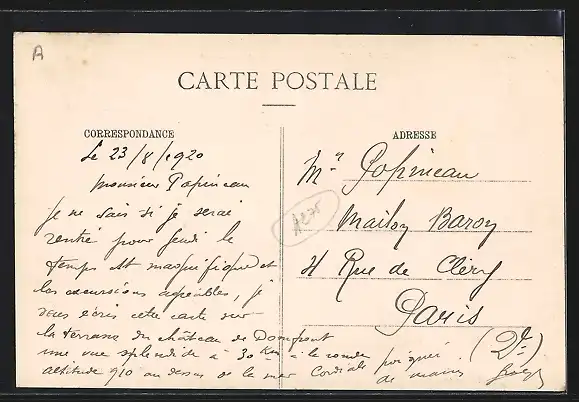 A
CARTE POSTALE
CORRESPONDANCE
Le 23/8/1920
Monsieur Papineau
je ne sais si je serai
rentré pour jeudi le
temps est magnifique et
les excursions agréables, je
vous écris cette carte sur
la terrasse du château de Domfront
une vue splendide à 30 Km à la ronde
altitude 910 au dessus de la mer Cordiale poignée
de mains
ADRESSE
Mr Papineau
Maison Baron
Rue de Cléry
Paris